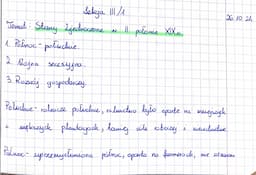 Lekcja III/1
26.10.21
Temat: Stany Zjednoczone w II połowie XIXw.
1. Północ - południe.
2. Wojna secesyjna.
3. Rozwój gospodarczy.
Południe - rolnicze południe, rolnictwo było oparte na
większych plantacjach, bawełny
Północ - uprzemysłowiona północ, oparta na farmerach, nie